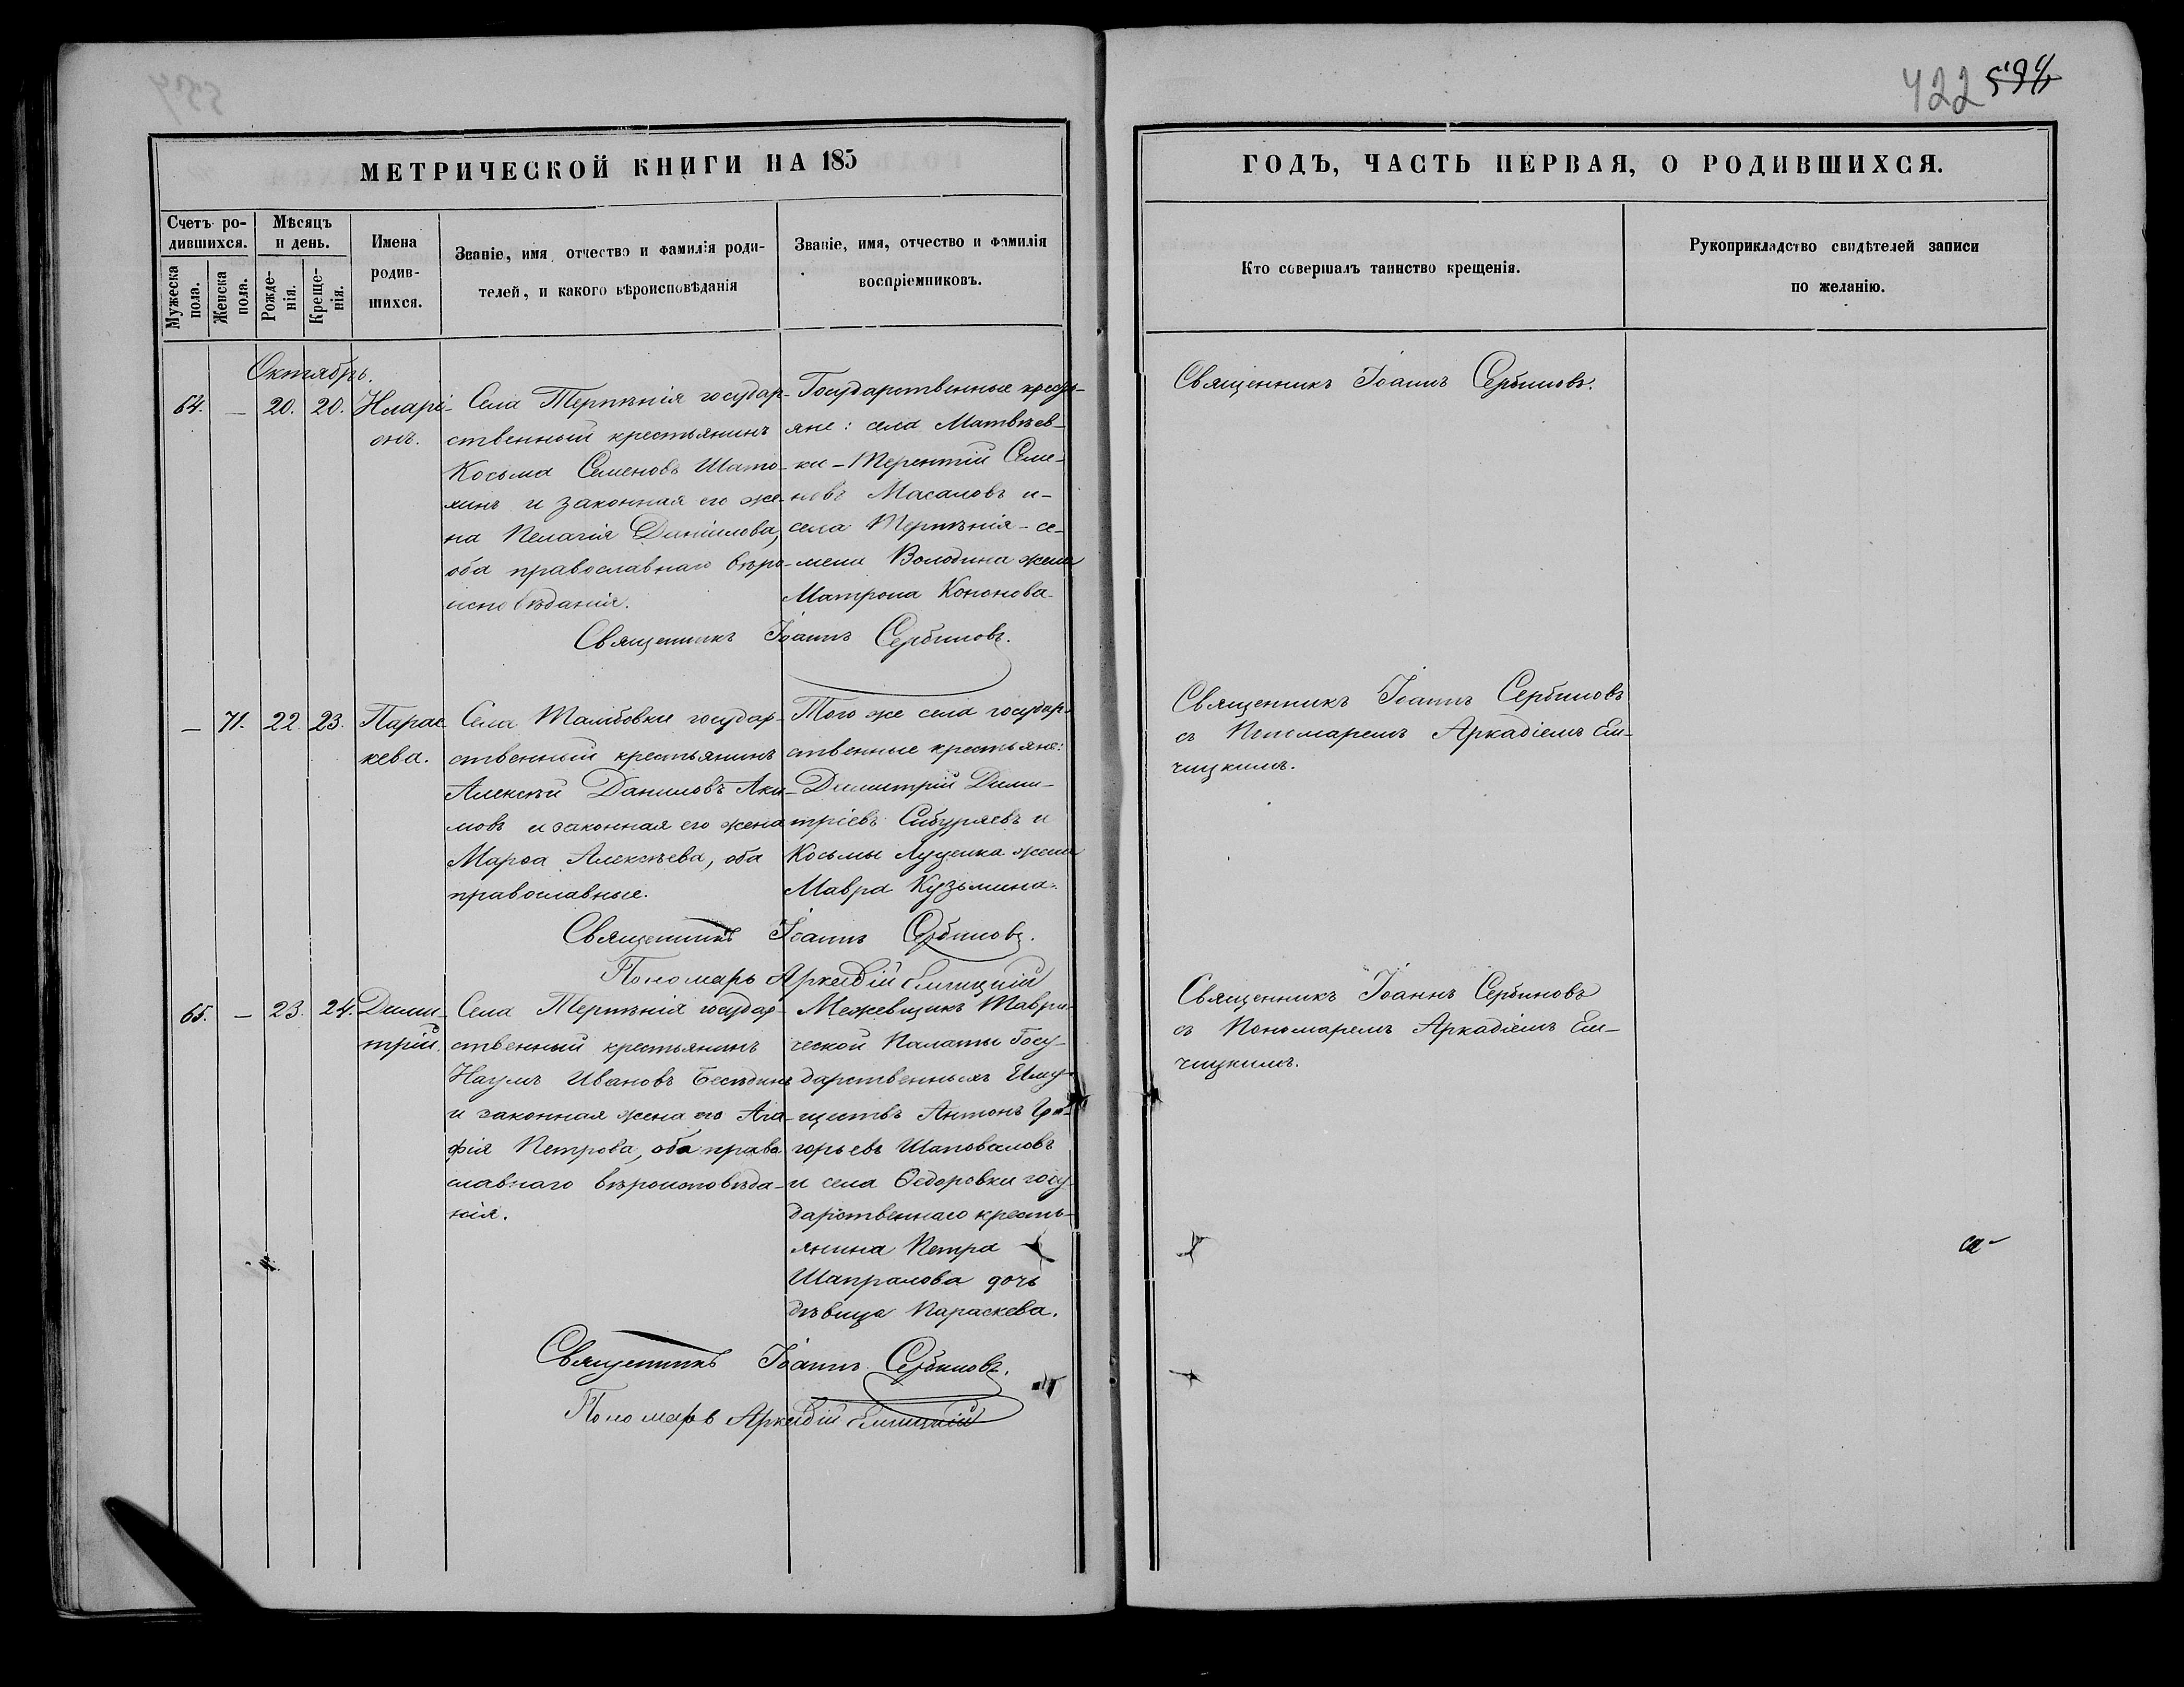 422 594
МЕТРИЧЕСКОЙ КНИГИ НА 185
ГОДЪ, ЧАСТЬ ПЕРВАЯ, О РОДИВШИХСЯ.
Счетъ ро-
дившихся.
Мужеска
пола.
Женска
пола.
Мѣсяцъ
и день.
Рожде-
нія.
Креще-
нія.
Имена
родив-
шихся.
Званіе, имя, отчество и фамилія роди-
телей, и какого вѣроисповѣданія
Званіе, имя, отчество и фамилія
воспріемниковъ.
Кто совершалъ таинство крещенія.
Рукоприкладство свидѣтелей записи
по желанію.
Октябрь.
64. — 20. 20.
Иларі-
онъ.
Села Терпѣнія государ-
ственный крестьянинъ
Косьма Семеновъ Шато-
хинъ и законная его же-
на Пелагія Даніилова,
оба православнаго вѣро-
исповѣданія.
Государственные кресть-
яне: села Матвѣев-
ки – Терентій Семе-
новъ Масаловъ и –
села Терпѣнія – Се-
мена Володина жена
Матрона Кононова
Священникъ Іоаннъ Сербиновъ.
Священникъ Іоаннъ Сербиновъ.
— 71. 22. 23.
Парас-
кева.
Села Тамбовки государ-
ственный крестьянинъ
Алексѣй Даниловъ Аки-
мовъ и законная его жена
Марѳа Алексѣева, оба
православные.
Того же села государ-
ственные крестьяне:
Димитрій Дими-
тріевъ Сибуряевъ и
Косьмы Луценка жена
Мавра Кузьмина.
Священникъ Іоаннъ Сербиновъ.
Пономарь Аркадій
Священникъ Іоаннъ Сербиновъ
съ Пономаремъ Аркадіемъ Ем-
чицкимъ.
65. — 23. 24.
Дими-
трій.
Села Терпѣнія государ-
ственный крестьянинъ
Наумъ Ивановъ Бесѣдинъ
и законная жена его Ага-
фія Петрова, оба право
славнаго вѣроисповѣда-
нія.
Межевщикъ Таври-
ческой Палаты Госу-
дарственныхъ Иму-
ществъ Антонъ Гри-
горьевъ Шаповаловъ
и села Ѳедоровки госу-
дарственнаго кресть-
янина Петра
Шапралова дочь
дѣвица Параскева.
Священникъ Іоаннъ Сербиновъ.
Пономарь Аркадій
Священникъ Іоаннъ Сербиновъ
съ Пономаремъ Аркадіемъ Ем-
чицкимъ.